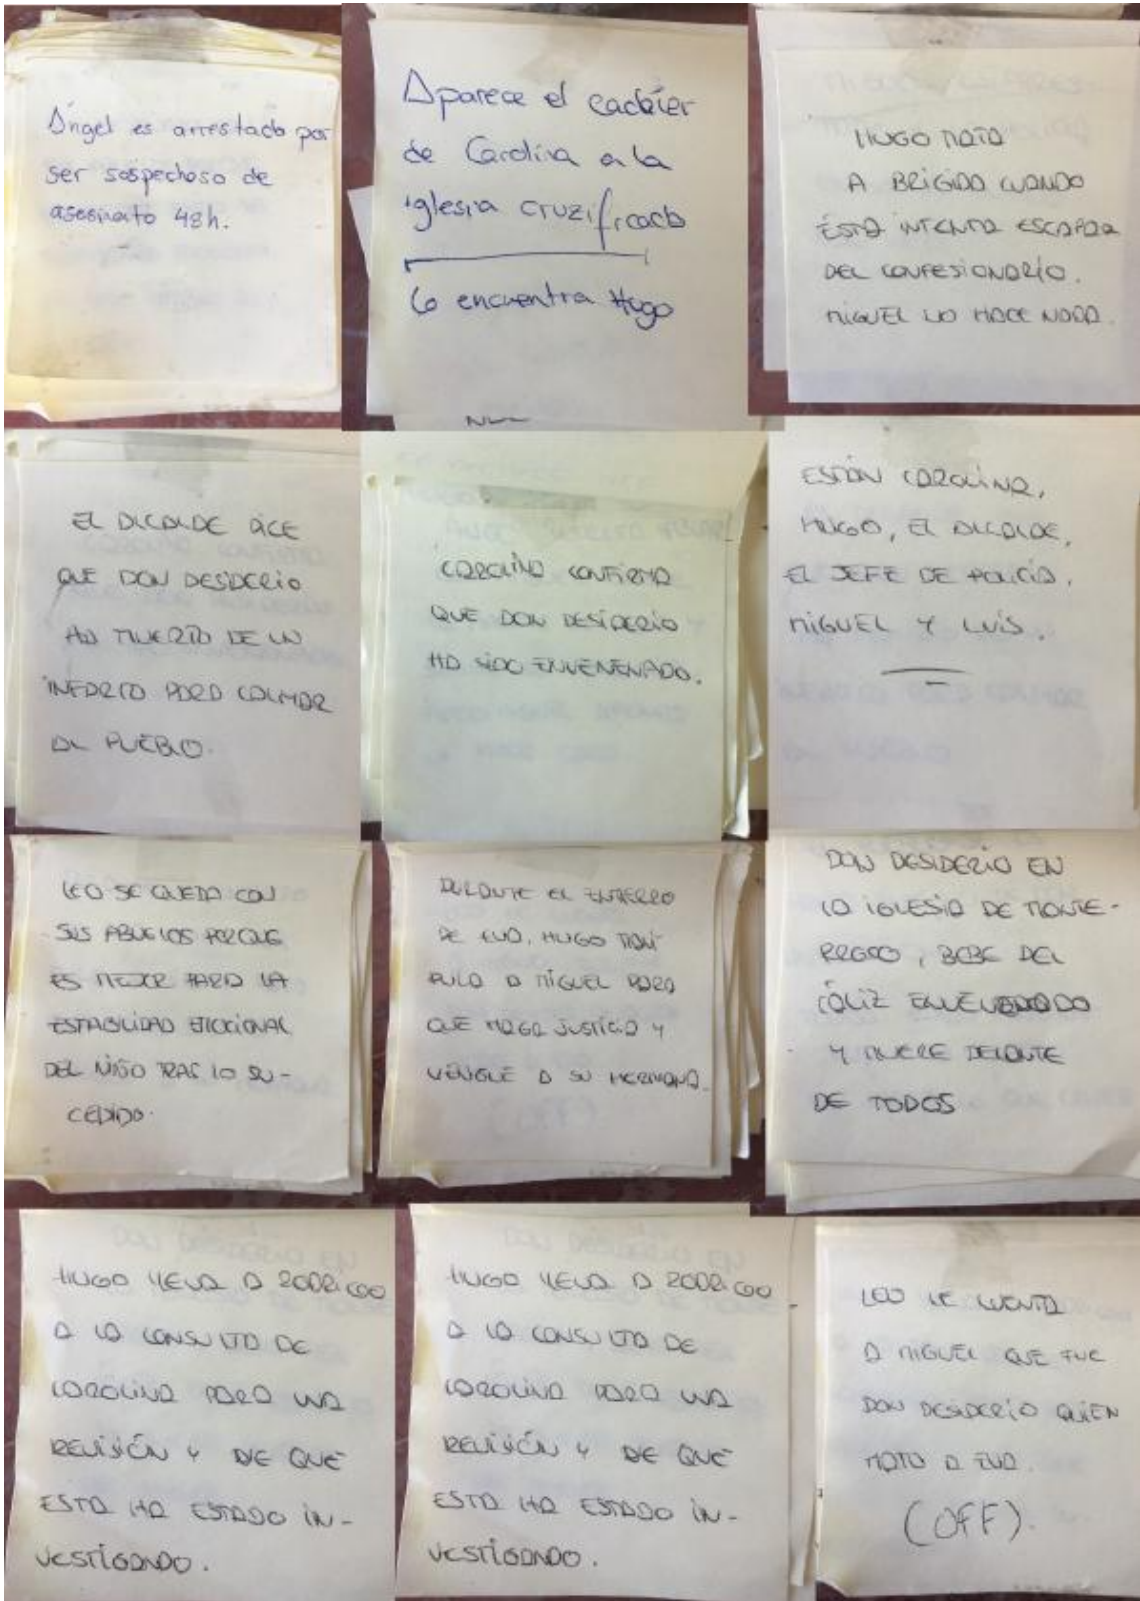 Ángel es arrestado por
ser sospechoso de
asesinato 48h.
Aparece el cadáver
de Carolina a la
iglesia cruzificado
Lo encuentra Hugo
HUGO MATA
A BRÍGIDA CUANDO
ÉSTA INTENTA ESCAPAR
DEL CONFESIONARIO.
MIGUEL NO HACE NADA.
EL ALCALDE DICE
QUE DON DESIDERIO
HA MUERTO DE UN
INFARTO PARA CALMAR
AL PUEBLO.
CAROLINA CONFIRMA
QUE DON DESIDERIO
HA SIDO ENVENENADO.
ESTÁN CAROLINA,
HUGO, EL ALCALDE,
EL JEFE DE POLICÍA,
MIGUEL Y LUÍS.
LEO SE QUEDA CON
SUS ABUELOS PORQUE
ES MEJOR PARA LA
ESTABILIDAD EMOCIONAL
DEL NIÑO TRAS LO SU-
CEDIDO.
DURANTE EL ENTIERRO
DE EVA, HUGO MANI-
PULA A MIGUEL PARA
QUE HAGA JUSTÍCIA Y
VENGUE A SU HERMANA.
DON DESIDERIO EN
LA IGLESIA DE MONTE-
RROSO, BEBE DEL
CÁLIZ ENVENENADO
Y MUERE DELANTE
DE TODOS
HUGO LLEVA A RODRIGO
A LA CONSULTA DE
CAROLINA PARA UNA
REVISIÓN Y VE QUE
ESTA HA ESTADO IN-
VESTIGANDO.
HUGO LLEVA A RODRIGO
A LA CONSULTA DE
CAROLINA PARA UNA
REVISIÓN Y VE QUE
ESTA HA ESTADO IN-
VESTIGANDO.
LEO LE CUENTA
A MIGUEL QUE FUE
DON DESIDERIO QUIEN
MATO A EVA.
(OFF).